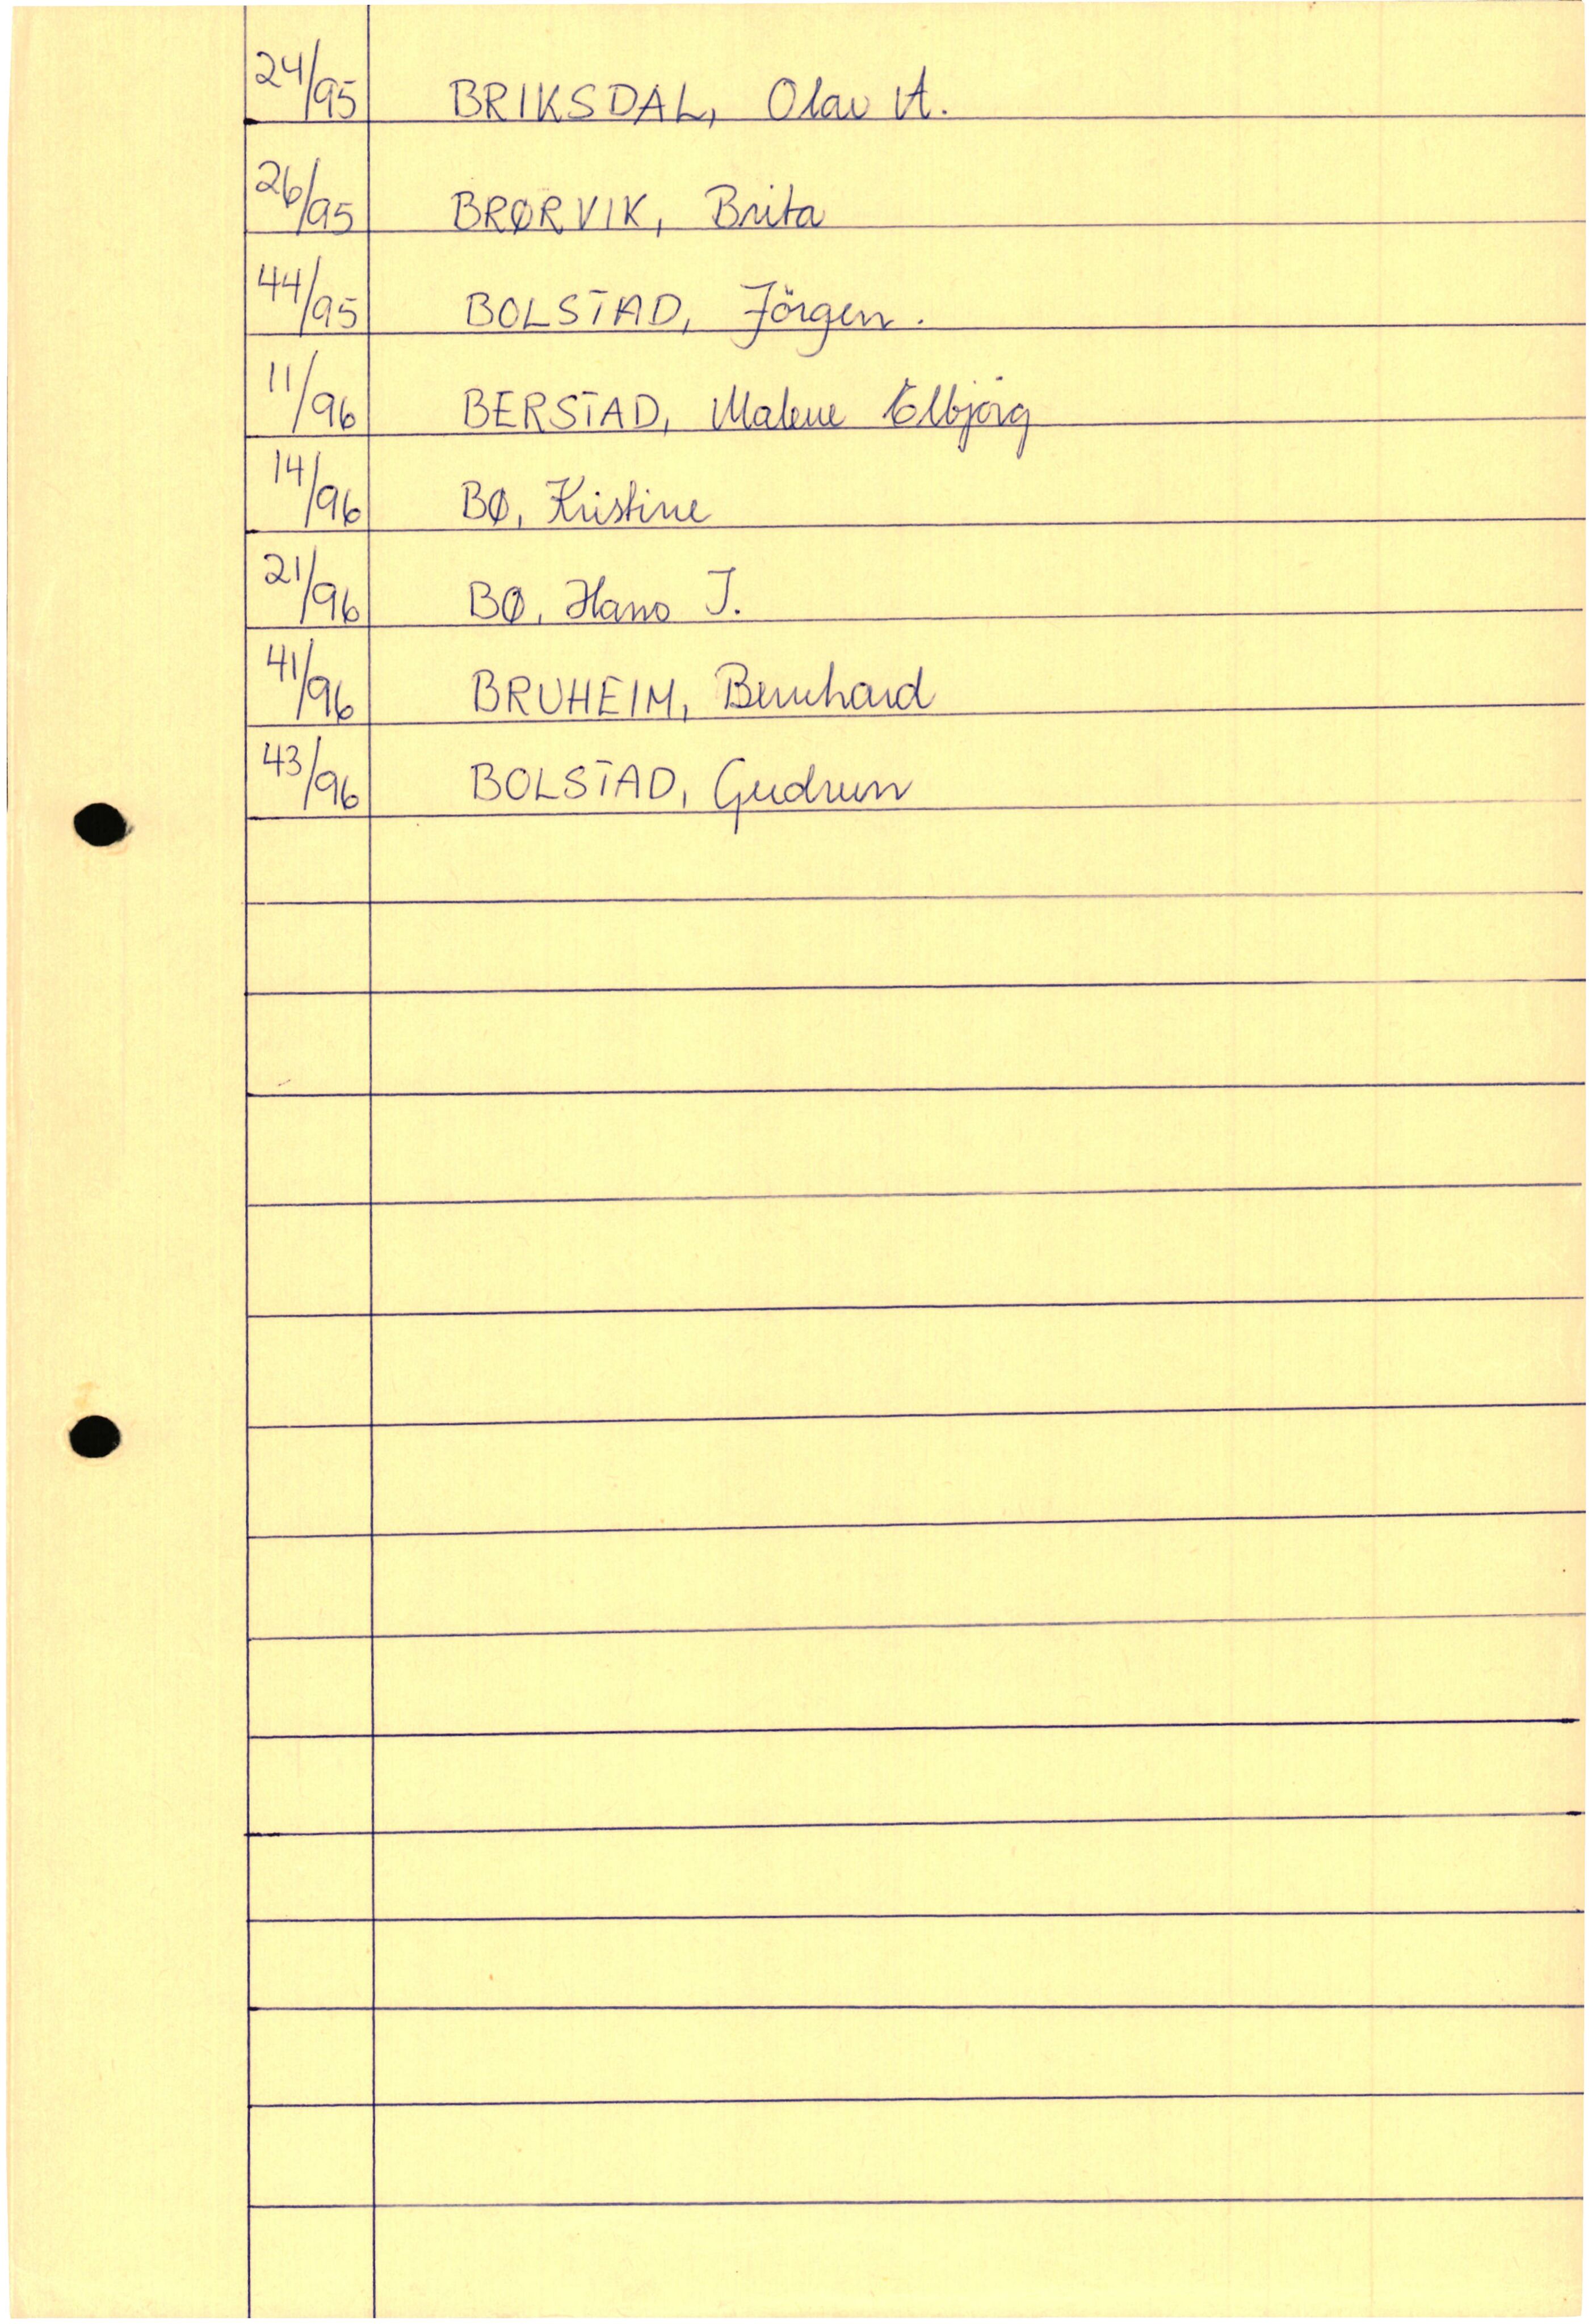 24/95 BRIKSDAL, Olav A.
26/95 BRØRVIK, Brita
44/95 BOLSTAD, Jörgen.
11/96 BERSTAD, Malene Elbjørg
14/96 BØ, Kristine
21/96 BØ, Hans J.
41/96 BRUHEIM, Bernhard
43/96 BOLSTAD, Gudrun